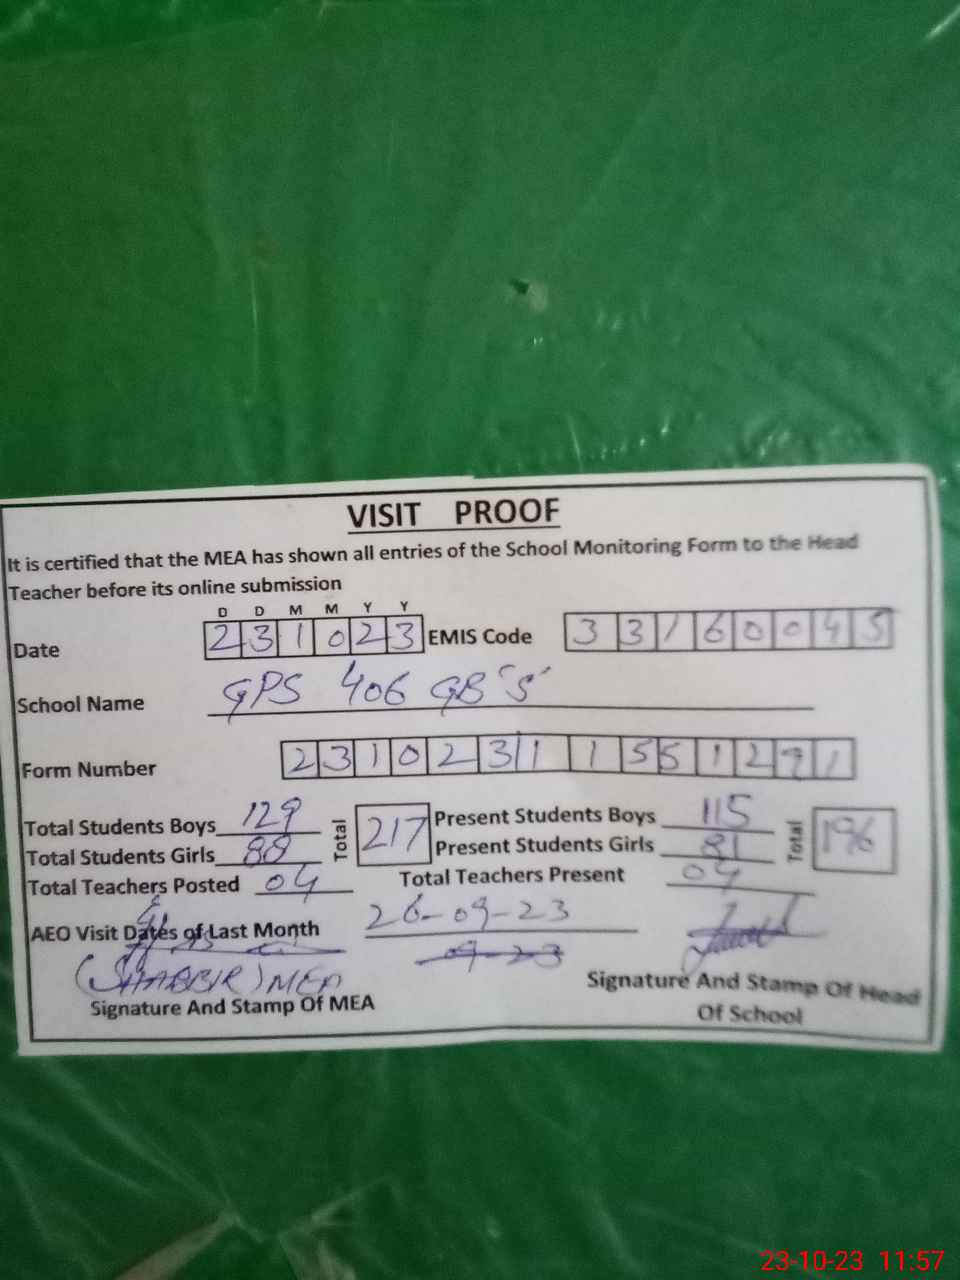 VISIT PROOF
It is certified that the MEA has shown all entries of the School Monitoring Form to the Head
Teacher before its online submission
D D M M Y Y
Date 2 3 1 0 2 3 EMIS Code 3 3 1 6 0 0 4 5
School Name GPS 406 GB "S"
Form Number 2 3 1 0 2 3 1 1 5 5 1 2 9 1
Total Students Boys 129 Total 217 Present Students Boys 115 Total 196
Total Students Girls 88 Present Students Girls 81
Total Teachers Posted 04 Total Teachers Present 04
AEO Visit Dates of Last Month 26-09-23
09-23
(SHABBIR) MEA
Signature And Stamp Of MEA Signature And Stamp Of Head
Of School
23-10-23 11:57